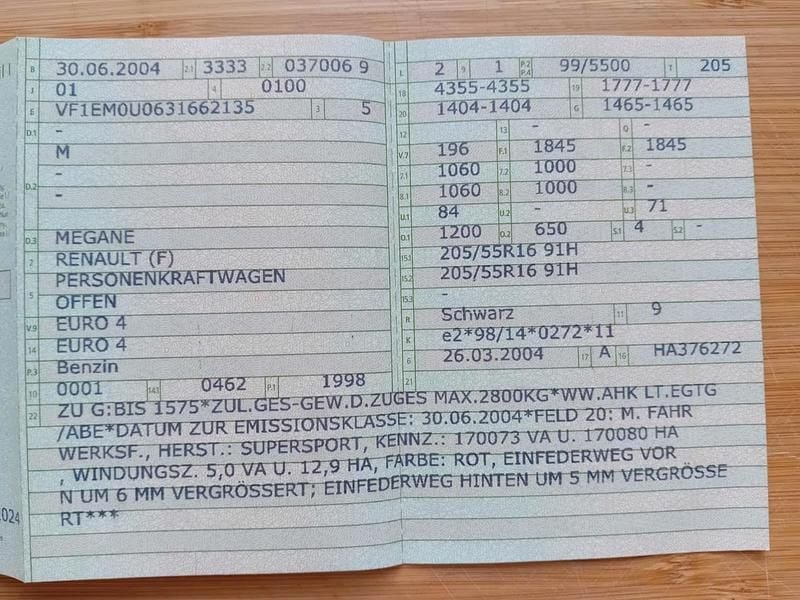 B 30.06.2004 2.1 3333 2.2 037006 9
J 01 4 0100
E VF1EM0U0631662135 3 5
D.1 -
M
-
D.2 -
D.3 MEGANE
2 RENAULT (F)
PERSONENKRAFTWAGEN
5 OFFEN
V.9 EURO 4
14 EURO 4
P.3 Benzin
10 0001 14.1 0462 P.1 1998
L 2 9 1 P.2 P.4 99/5500 T 205
18 4355-4355 19 1777-1777
20 1404-1404 G 1465-1465
12 13 - Q -
V.7 196 F.1 1845 F.2 1845
7.1 1060 7.2 1000 7.3 -
8.1 1060 8.2 1000 8.3 -
U.1 84 U.2 - U.3 71
O.1 1200 O.2 650 S.1 4 S.2 -
15.1 205/55R16 91H
15.2 205/55R16 91H
15.3 -
R Schwarz 11 9
K e2*98/14*0272*11
6 26.03.2004 17 A 16 HA376272
21
22 ZU G:BIS 1575*ZUL.GES-GEW.D.ZUGES MAX.2800KG*WW.AHK LT.EGTG
/ABE*DATUM ZUR EMISSIONSKLASSE: 30.06.2004*FELD 20: M. FAHR
WERKSF., HERST.: SUPERSPORT, KENNZ.: 170073 VA U. 170080 HA
, WINDUNGSZ. 5,0 VA U. 12,9 HA, FARBE: ROT, EINFEDERWEG VOR
N UM 6 MM VERGRÖSSERT; EINFEDERWEG HINTEN UM 5 MM VERGRÖSSE
RT***